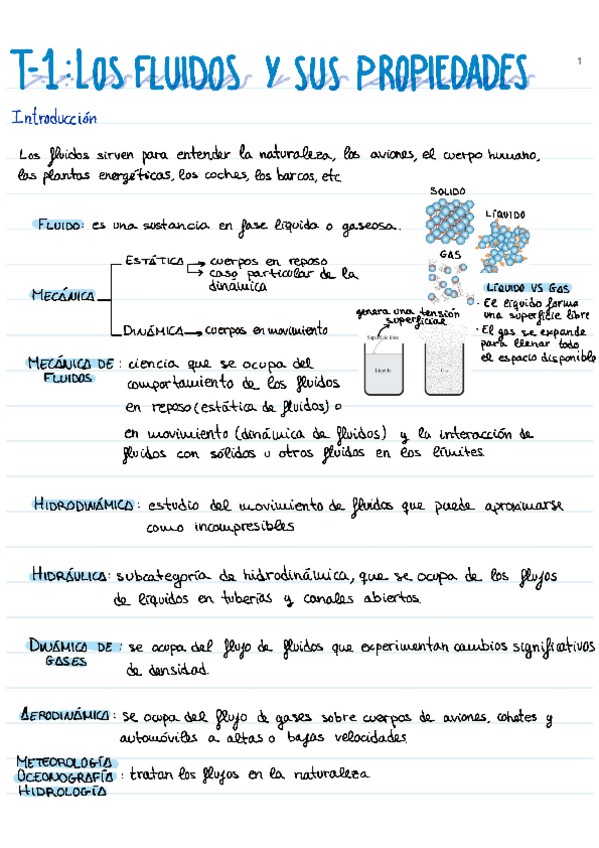 T-1: LOS FLUIDOS Y SUS PROPIEDADES
1
Introducción
Los fluidos sirven para entender la naturaleza, los aviones, el cuerpo humano,
las plantas energéticas, los coches, los barcos, etc
FLUIDO: es una sustancia en fase líquida o gaseosa.
SOLIDO
LÍQUIDO
GAS
MECÁNICA
ESTÁTICA → cuerpos en reposo
→ caso particular de la
dinámica
DINÁMICA → cuerpos en movimiento
LÍQUIDO VS GAS
· El líquido forma
una superficie libre
· El gas se expande
para llenar todo
el espacio disponible
genera una tensión
superficial
Superficie libre
Líquido
Gas
MECÁNICA DE : ciencia que se ocupa del
FLUIDOS
comportamiento de los fluidos
en reposo (estática de fluidos) o
en movimiento (dinámica de fluidos) y la interacción de
fluidos con sólidos u otros fluidos en los límites.
HIDRODINÁMICA: estudio del movimiento de fluidos que puede aproximarse
como incompresibles
HIDRÁULICA: subcategoría de hidrodinámica, que se ocupa de los flujos
de líquidos en tuberías y canales abiertos.
DINÁMICA DE : se ocupa del flujo de fluidos que experimentan cambios significativos
GASES
de densidad.
AERODINÁMICA: se ocupa del flujo de gases sobre cuerpos de aviones, cohetes y
automóviles a altas o bajas velocidades.
METEOROLOGÍA
OCEONOGRAFÍA : tratan los flujos en la naturaleza
HIDROLOGÍA